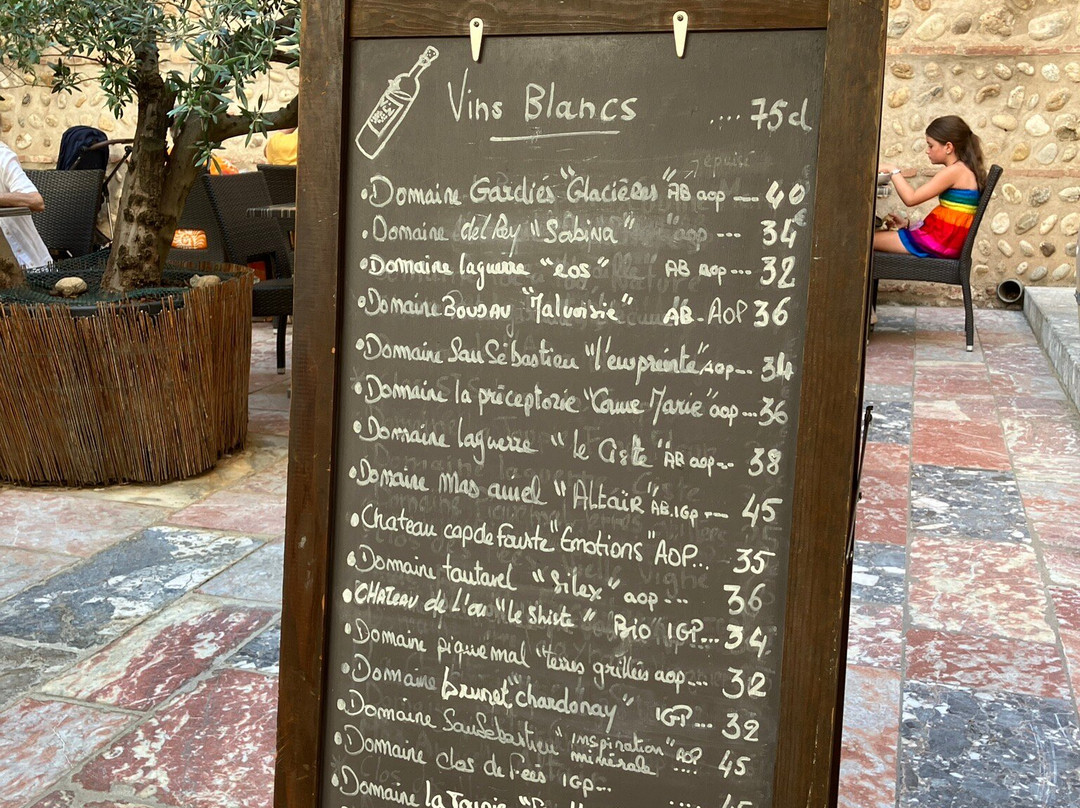 Vins Blancs .... 75cl
épuisé
• Domaine Gardiés "Glacières" AB aop --- 40
• Domaine del Rey "Sabina" aop --- 34€
• Domaine laguerre "eos" AB aop --- 32
• Domaine BOUDAU "Malvoisie" AB - AOP 36
• Domaine San Sébastien "l'empreinte" aop -- 34
• Domaine la préceptorie "Coume Marie" aop --- 36
• Domaine laguerre "le Ciste" AB aop -- 38
• Domaine Mas amiel "Altaïr" AB.IGP --- 45
• Chateau cap de fouste "Emotions" AOP... 35
• Domaine tautavel "Silex" aop --- 36
• CHATEAU de L'ou "Le Shiste" Bio IGP... 34
• Domaine pique mal "terres grillées aop --- 32
• Domaine brunet "chardonay" IGP... 32
• Domaine San Sebastien "inspiration minérale" AOP .... 45
• Domaine clos de Fées IGP...
• Domaine la